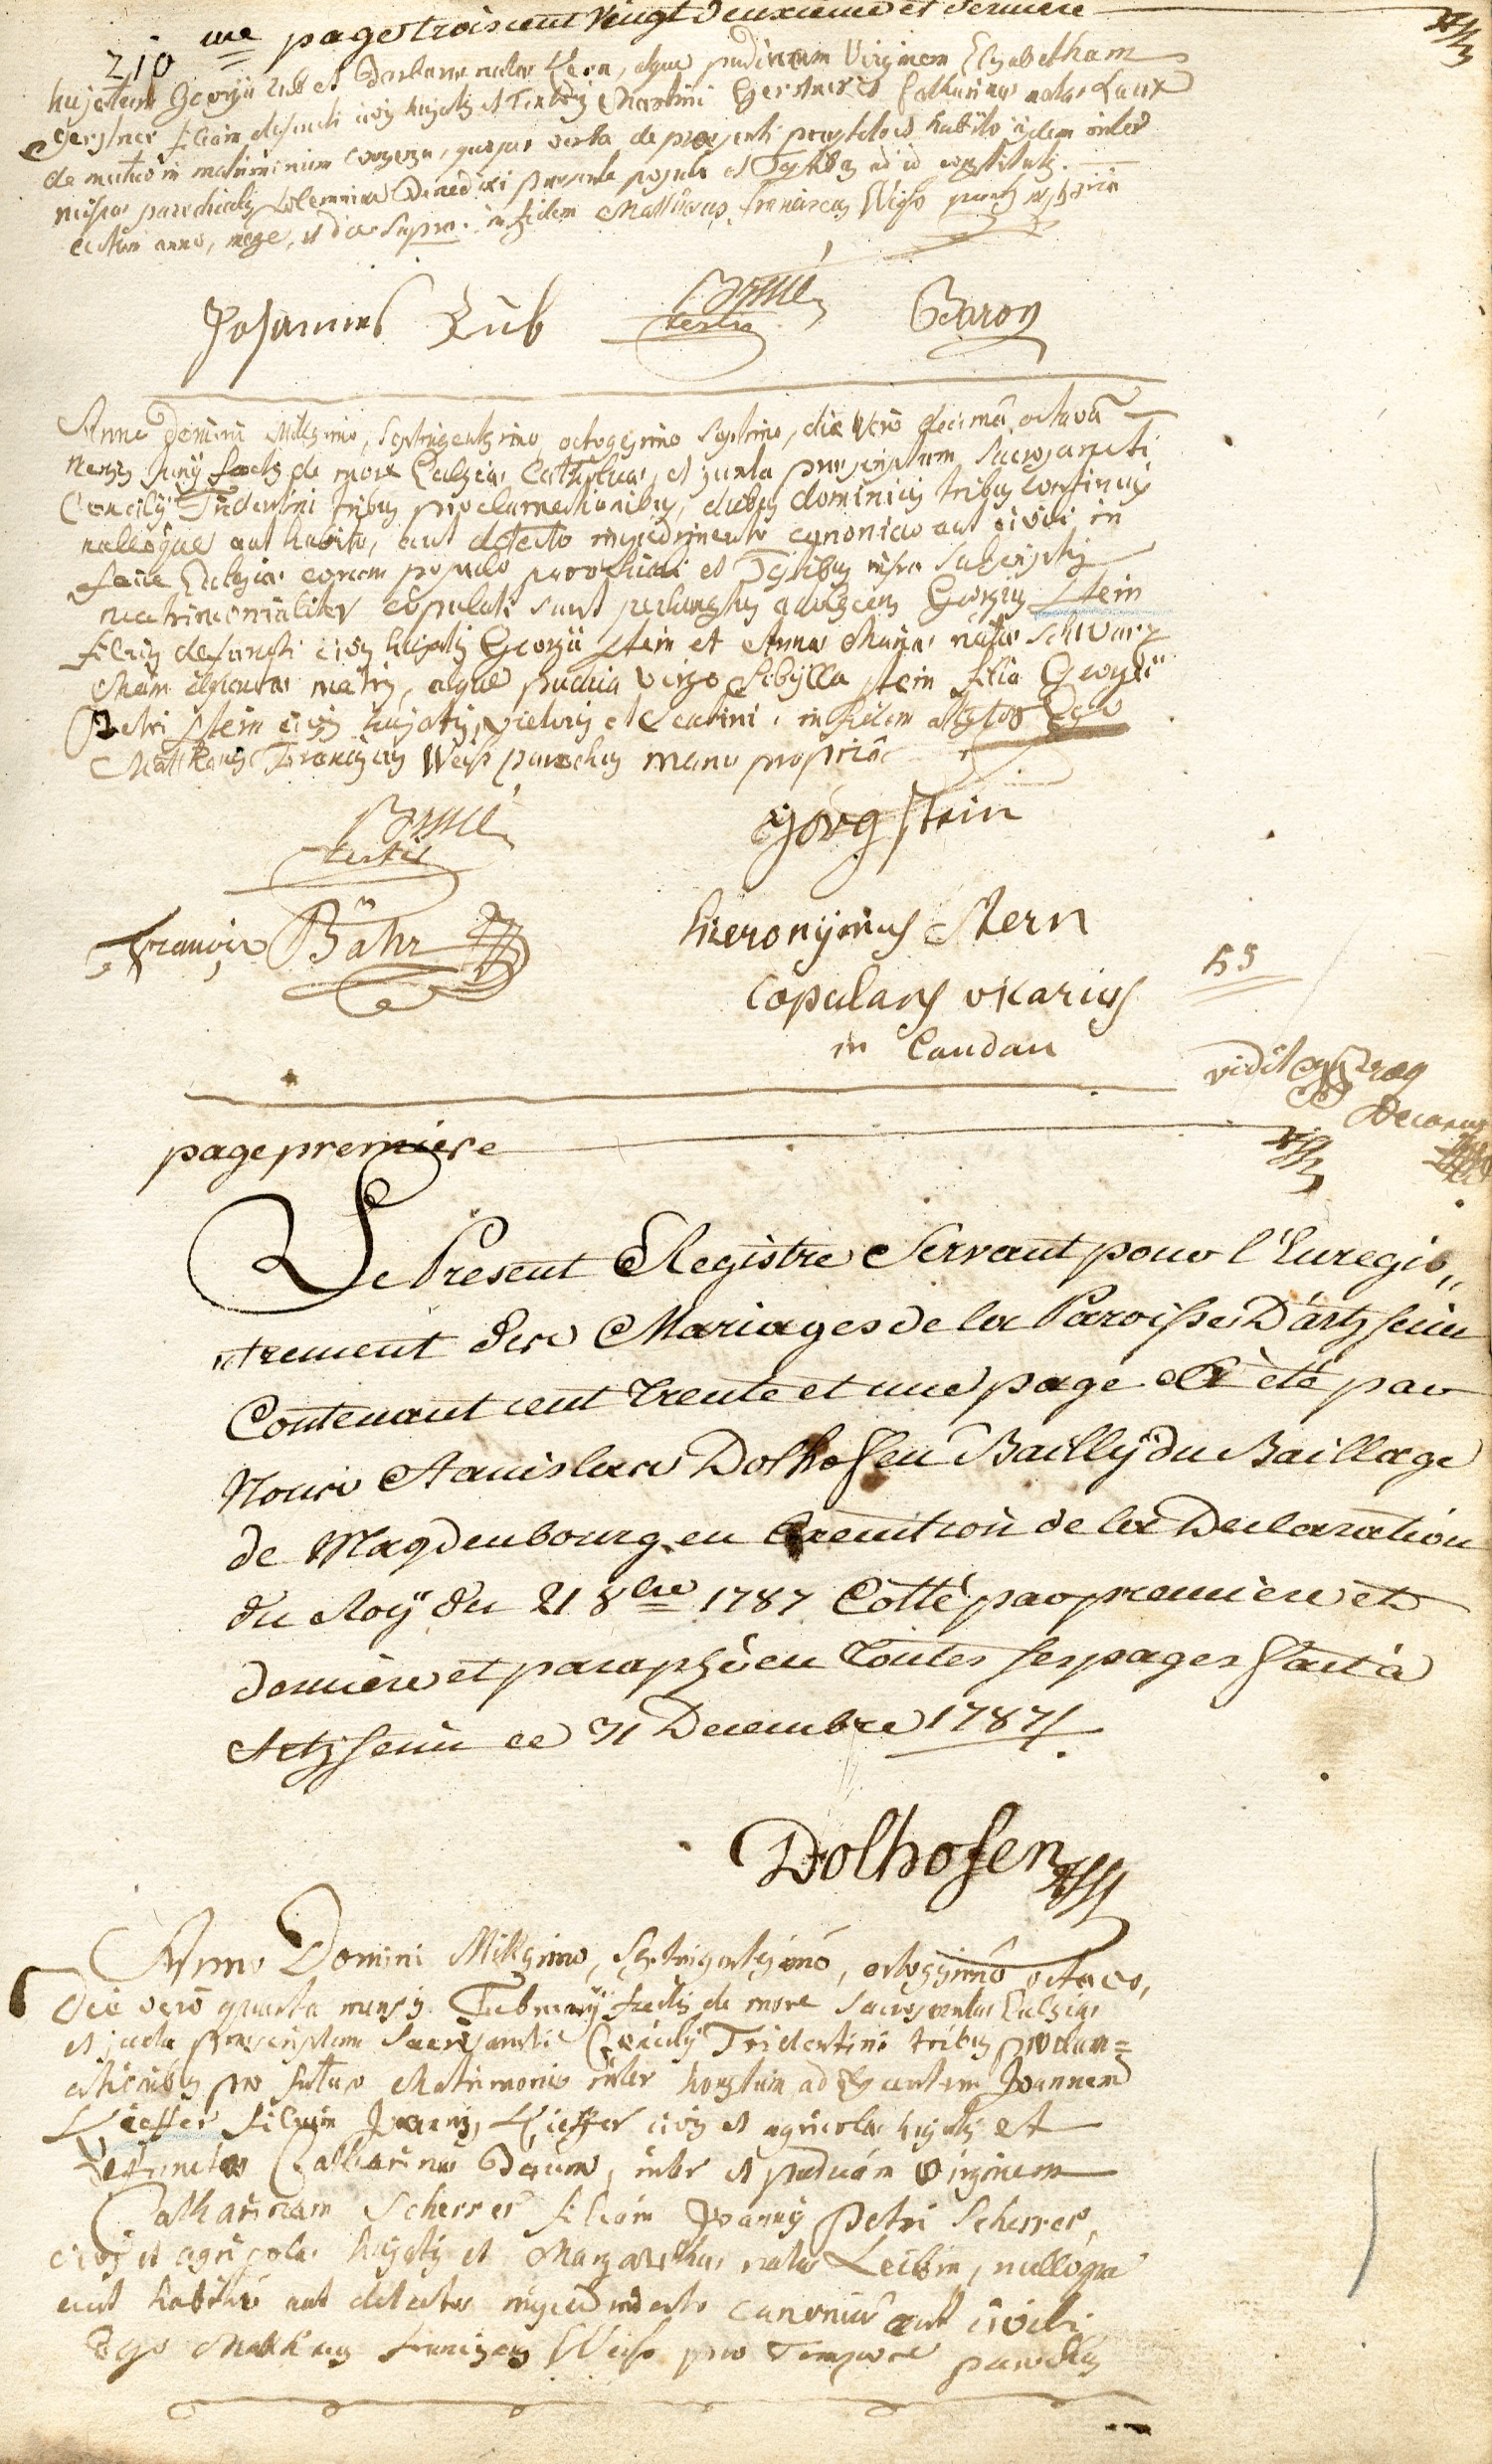 210 me page troiscent Vingt deuxieme et derniere
hujatem Georgii Lub et Barbara natæ Kern, atque pudicam Virginem Elisabetham
gerstner filiam defuncti civis hujatis et Martini Gerstner et Catharinæ natæ Laux
de mutuo in matrimonium consensu, per verba de præsenti habito eosdem inter
missæ parochialis solemnia Benedixi præsente populo et Testibus ad id constitutis.
actum anno, mense, et die supra. in fidem Matthæus franciscus Weiss
Johannes Lub
testis
Baron
Anno domini Millesimo, Septingentesimo octogesimo septimo, die vero decimâ octavâ
mensis Junÿ factis de more Ecclesiæ Catholicæ, et juxta præscriptum sacrosancti
Concilÿ Tridentini tribus proclamationibus, diebus dominicis tribus continuis
nullóque aut habito, aut detecto impedimento canonico aut civili, in
facie Ecclesiæ coram populo parochiali et Testibus infra subscriptis
matrimonialiter copulati sunt perhonestus adolescens Georgius Stein
filius defuncti civis hujatis Georgii Stein et Annæ Mariæ natæ Schwarz
matris, atque pudica virgo Sibÿlla Stein filia Georgii
Petri Stein civis hujatis, et Scabini. in fidem attestor Ego
Matthæus Franciscus Weiss parochus manu propriâ
testis
görg stein
François Bähr
hieronÿmus Stern
copulans vicarius
in Landau
55
vidit
Decanus
page premiere
Le Present Registre Servant pour l'Enregis„
„trement des Mariages de la Paroisse D'artzheim
Contenant cent trente et une page A été par
Nous Stanislas Dolhofen Baillÿ du Baillage
de Magdenbourg en Execution de la Declaration
du Roÿ du 21 8bre 1787 Cotté par premiere et
derniere et paraphé en toutes ses pages fait à
Artzheim ce 31 Decembre 1787
Dolhofen
Anno Domini Millesimo, Septingentesimô, octogesimô octavo,
die verò quarta mensis Februarÿ factis de more Sacrosanctæ Ecclesiæ
et juxta præscriptum Sacrosancti Concilÿ Tridentini tribus proclam=
ationibus pro futuro Matrimonio inter honestum adolescentem Joannem
Kieffer filium Joannis Kieffer civis et agricolæ hujatis et
defunctæ Catharinæ Daum, inter et pudicam virginem
Catharinam Scherrer filiam Joannis Petri Scherrer,
civis et agricolæ hujatis et Margarethæ natæ Leibin, nullóque
aut habito aut detecto impedimento canonico aut civili
Ego Matthæus Franciscus Weiss pro Tempore parochus